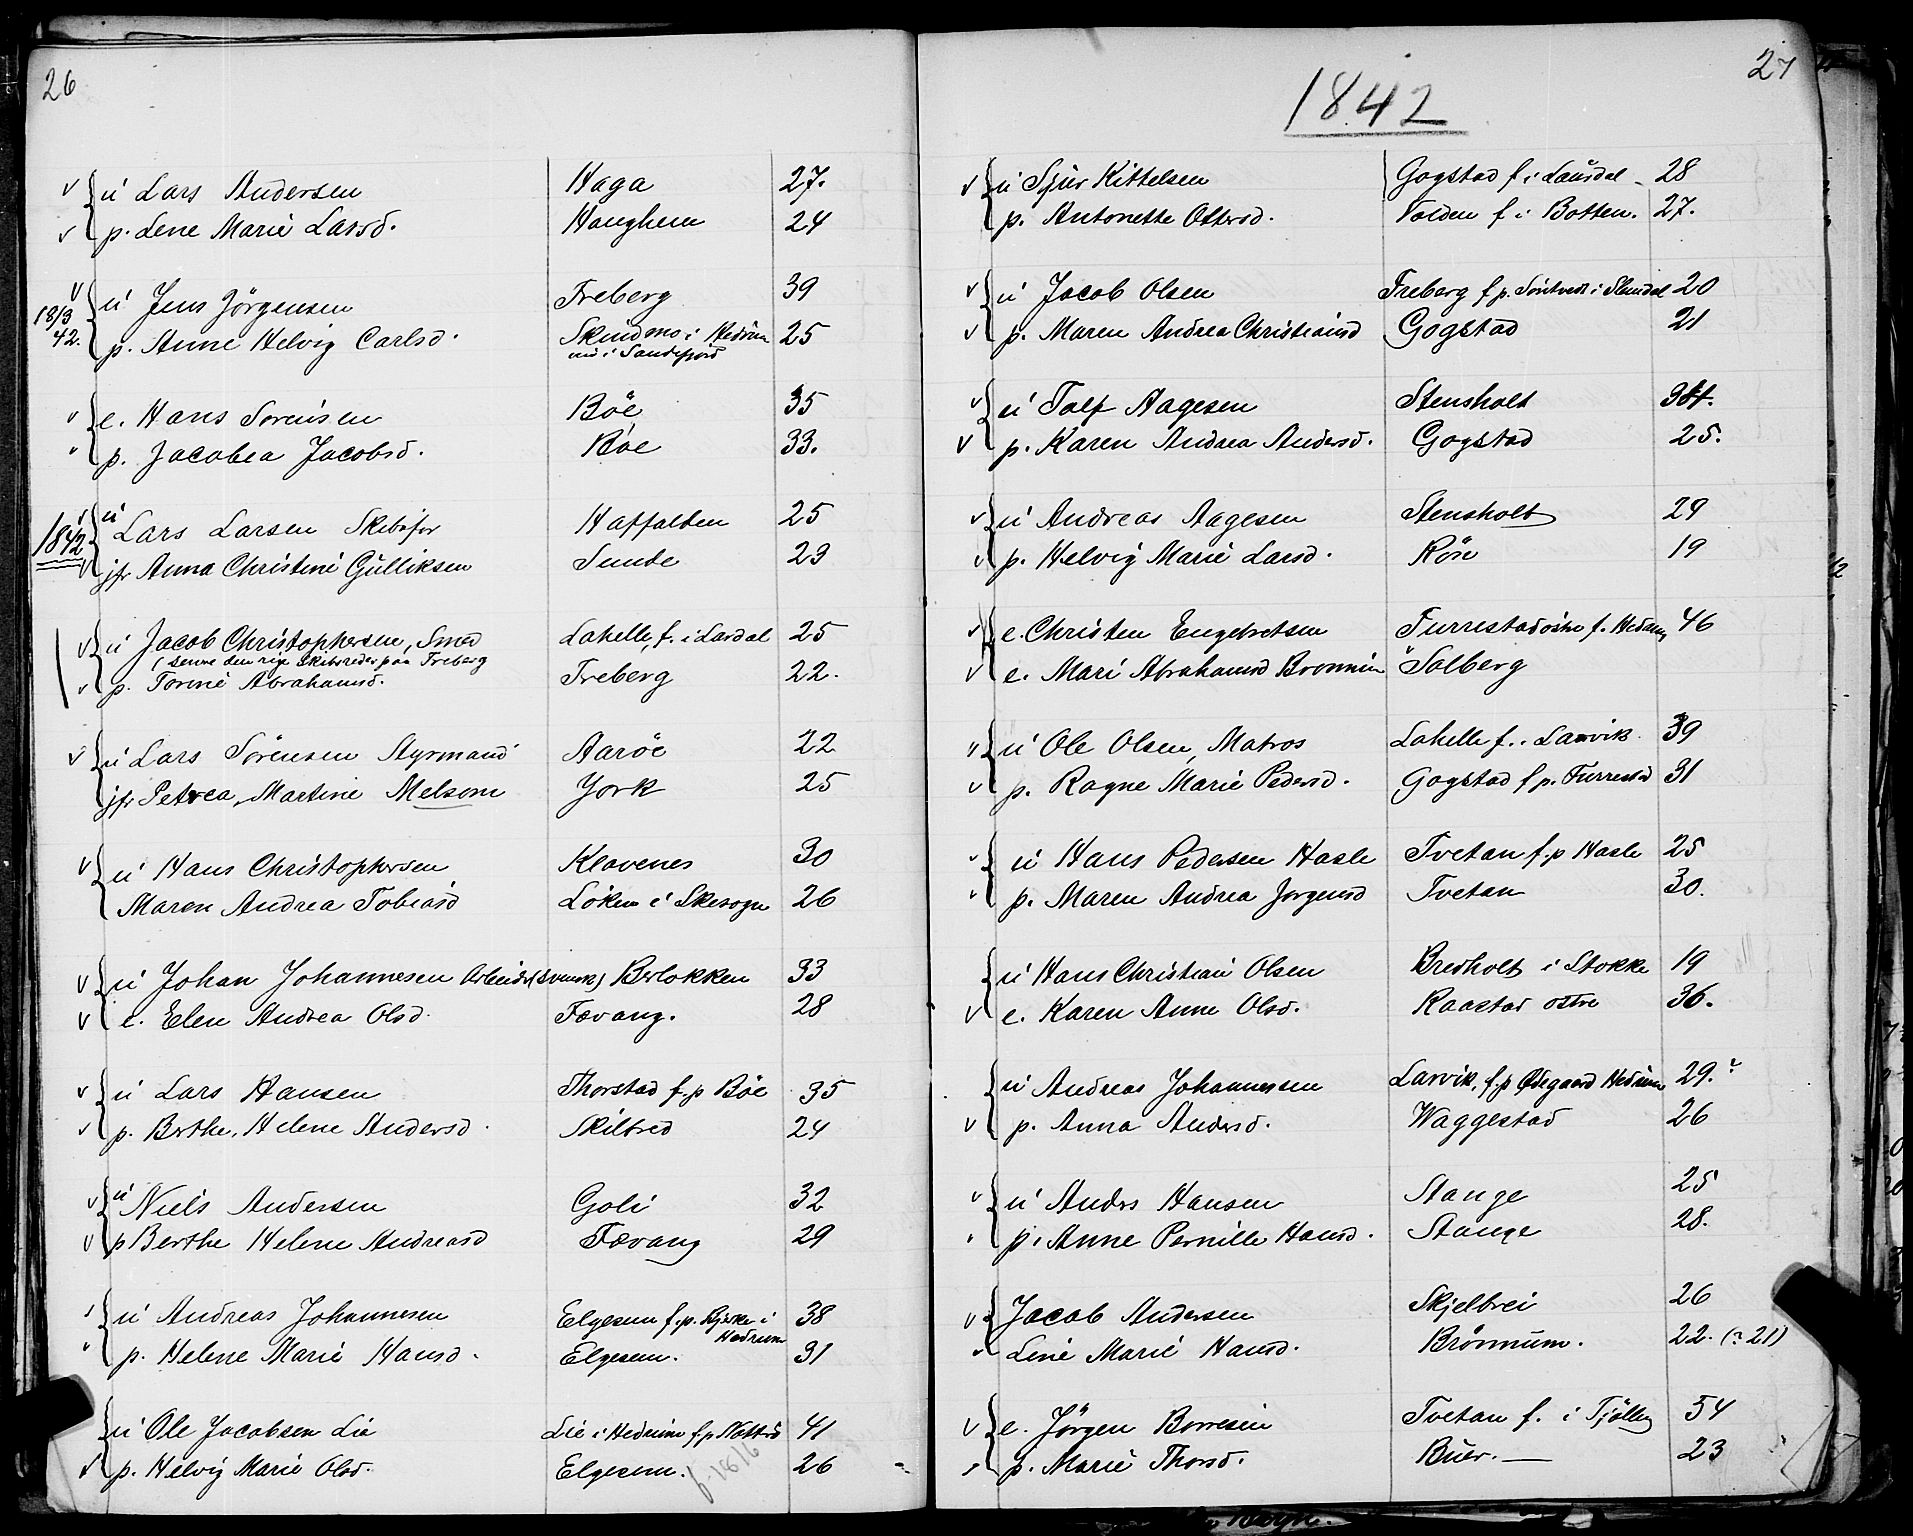 26
ú Lars Andersen Haga 27.
p. Lene Marie Larsd. Haughem 24
18/3 42. ú Jens Jörgensen Freberg 39
p. Anne Helvig Carlsd. Skindmo i Hedrum 25
nu i Sandefjord
e. Hans Sorensen Böe 35
p. Jacobea Jacobsd. Böe 33.
1842 ú Lars Larsen Skibsfør Haffalden 25
jfr Anna Christine Gulliksen Sunde 23
ú Jacob Christophersen, Smed Lahelle, f. i Lardal 25
(denne den rige Skibsreder paa Freberg
p. Torine Abrahamsd. Freberg 22.
ú Lars Sörensen Styrmand Aaröe 22
jfr Petrea Martine Melsom York 25
ú Hans Christophersen Klavenes 30
Maren Andrea Tobiasd Löken i Skesogn 26
ú Johan Johannesen Arbeider (svensk) Berlokken 33
e. Elen Andrea Olsd. Fævang. 28
ú Lars Hansen Thorstad f. p Böe 35
p. Berthe Helene Andersd. Skilbred 24
ú Niels Andersen Goli 32
p Berthe Helene Andreasd Fævang 29
ú Andreas Johannesen Elgesem f. p. Bjerke i 38
Hedrum
p. Helene Marie Hansd. Elgesem. 31
ú Ole Jacobsen Lie Lie i Hedrum f. p Nattrö 41
p. Helvig Marie Olsd. Elgesem. f. 1816 26
27
1842
ú Sjur Kittelsen Gogstad f. i Laurdal 28
p. Antonette Ottersd. Volden f. i Botten. 27.
ú Jacob Olsen Freberg f. p. Sontvedt i Slemdal 20
p. Maren Andrea Christiansd Gogstad 21
ú Tolf Aagesen Stensholt 34.
p. Karen Andrea Andersd. Gogstad 25.
ú Andreas Aagesen Stensholt 29
p. Helvig Marie Larsd. Röse 19
e. Christen Engebretsen Furrestad østre f. Hedrum 46
e. Mari Abrahamsd Bronnum Solberg
ú Ole Olsen, Matros Lahelle f. i Larvik 39
p. Ragne Marie Pedersd. Gogstad f p. Furrestd 31
ú Hans Pedersen Hasle Tvetan f. p Hasle 25
p. Maren Andrea Jorgensd Tvetan 30.
ú Hans Christian Olsen Bredholt i Stokke 19
e. Karen Anne Olsd. Raastad ostre 36.
ú Andreas Johannessen Larvik, f. p Ødegaard Hedrum 29.
p. Anna Andersd. Waggestad 26
ú Anders Hansen Stange 25
p. Anne Pernille Hansd. Stange 28.
Jacob Andersen Skjelbrei 26
Line Marie Hansd. Brönnum. 22. (? 21)
e. Jörgen Borresen Tvetan f. i Tjölling 54
p. Marie Thorsd. Buer. — 23